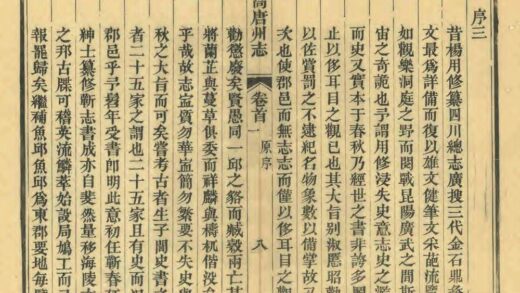 序三
昔楊用修纂四川總志廣搜三代金石鼎彝
文最為詳備而復以雄文健筆文采葩流
如觀樂洞庭之野而閱戰昆陽廣武之間斯
宙之奇詭也予謂用修浸失史意志史之
而史又實本于春秋乃經世之書非誇多
止以侈耳目之觀已也其大旨别淑慝昭勸
以佐賞罰之不逮紀名物象數以備掌故又
次也使郡邑而無志志而僅以侈耳目之觀
高唐州志
卷首一
原序
八
勸懲廢矣賢愚同一邱之貉而臧穀兩亡其
將蘭芷與蔓草俱委而祥麟與檮杌偕没
乎哉故志寧質勿華寧簡勿繁要不失史
秋之大旨而可矣嘗考古者生子閭史書
者二十五家之謂也二十五家且有史而
郡邑乎予年受書即明此意初任蘄春
紳士纂修蘄志書成亦自斐然量移海陵
之邦古牒可稽英流麟萃始設局鳩工而
報罷歸矣繼補魚邱魚邱為東郡要地每